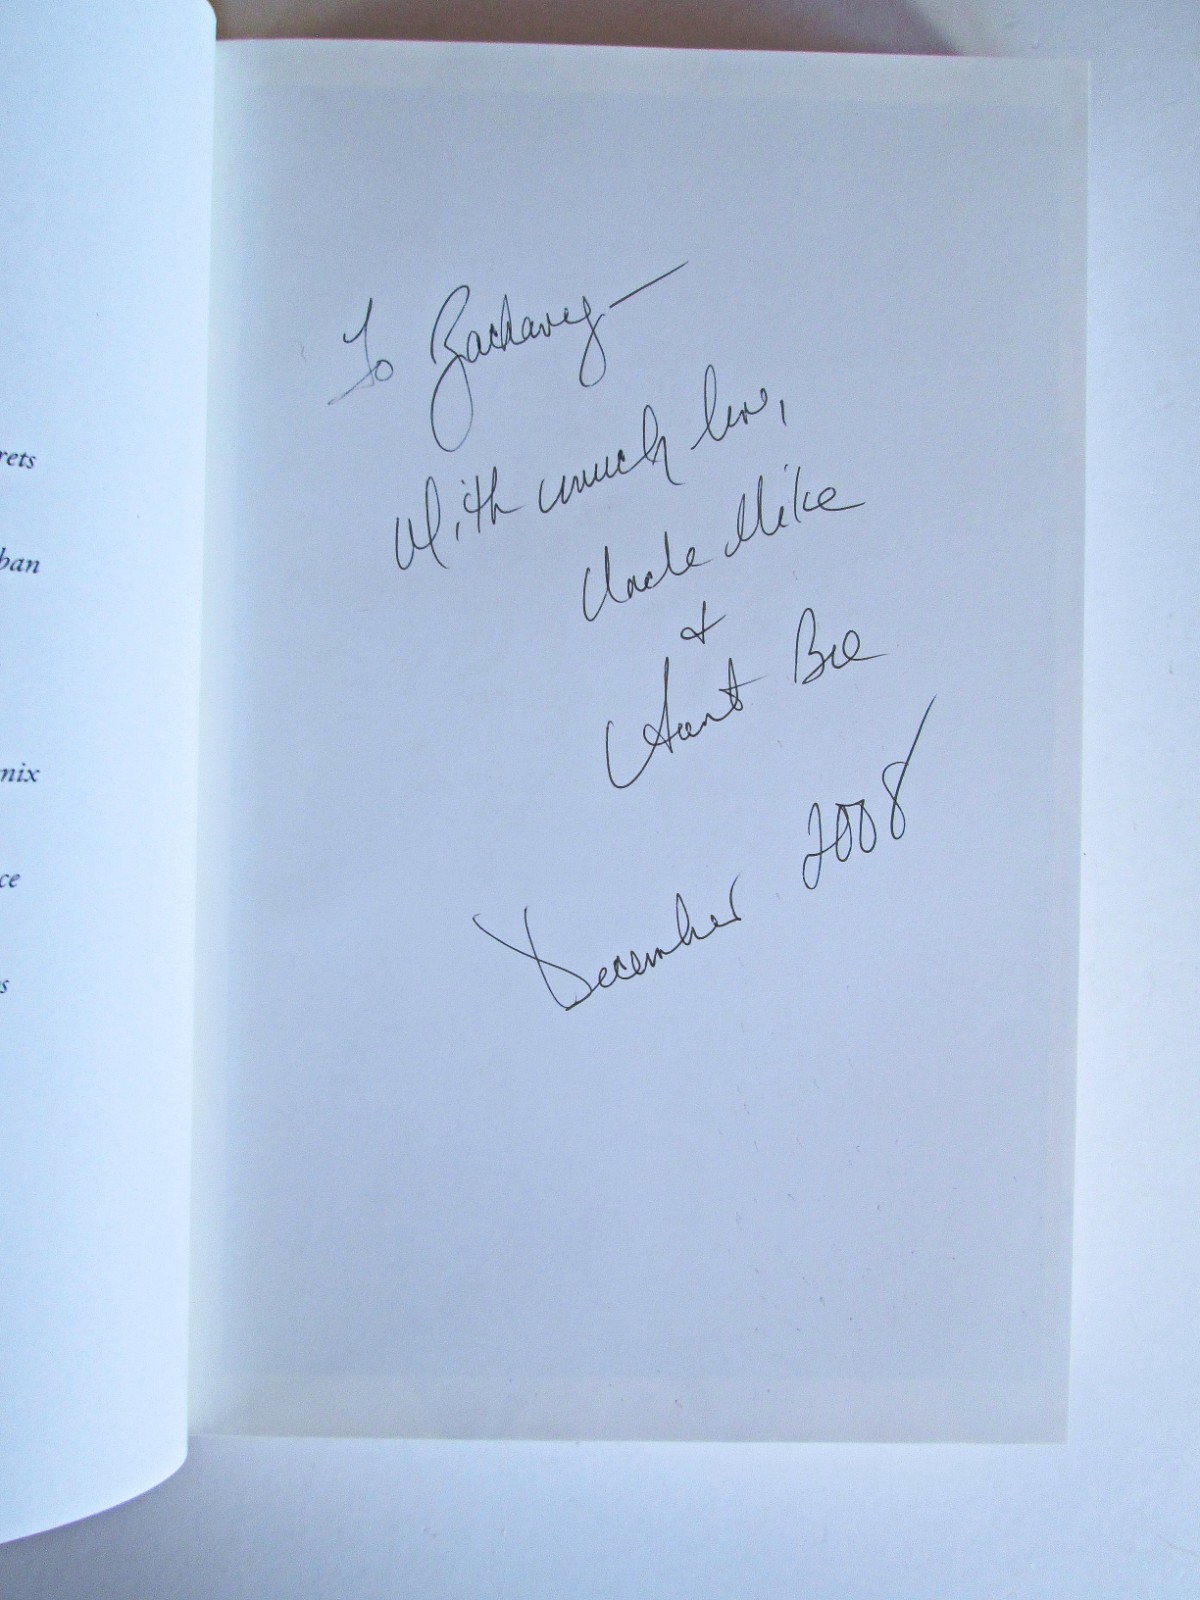 rets
ban
nix
ce
s
To Zachary—
With much love,
Uncle Mike
&
Aunt Bee
December 2008